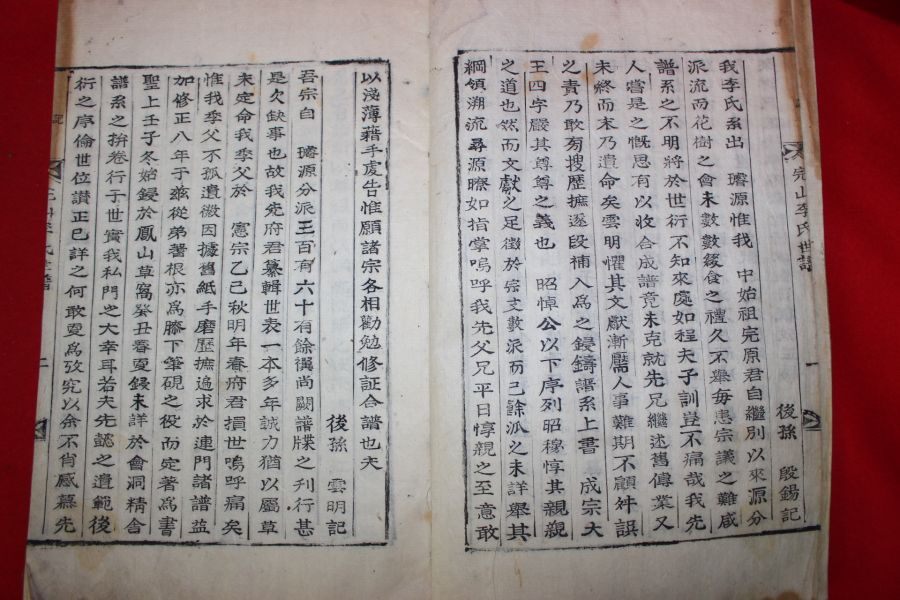 完山李氏世譜
一
後孫 殷錫記
我李氏系出 璿源惟我 中始祖完原君自繼別以來源分
派流而花樹之會未數數綴食之禮久不舉每患宗議之難咸
譜系之不明將於世衍不知來處如程夫子訓豈不痛哉我先
人嘗是之慨思有以收合成譜竟未克就先兄繼述舊傳業又
未終而末乃遺命矣雲明懼其文獻漸人事難期不顧舛誤
之責乃敢旁搜歷摭逐段補入爲之鋟鑄譜系上書 成宗大
王四字嚴其尊尊之義也 昭悼公以下序列昭穆惇其親親
之道也然而文獻之足徵於宗支數派而已餘派之未詳舉其
綱領溯流尋源瞭如指掌嗚呼我先父兄平日惇親之至意敢
以淺薄藉手處告惟願諸宗各相勸勉修証合譜也夫
後孫 雲明記
吾宗自 璿源分派三百有六十有餘禩尚闕譜牒之刊行甚
是欠缺事也故我先府君纂輯世表一本多年誠力猶以屬草
未定命我季父於 憲宗乙巳秋明年春府君損世嗚呼痛矣
惟我季父不孤遺微因據舊紙手磨歷摭遍求於連門諸譜益
加修正八年于玆從弟著根亦爲膝下筆硯之役而定著爲書
聖上壬子冬始鋟於鳳山草窩癸丑春夏錄未詳於會洞精舍
譜系之拚卷行于世實我私門之大幸耳若夫先懿之遺範後
衍之序倫世位讃正已詳之何敢更爲攷究以余不肖感慕先